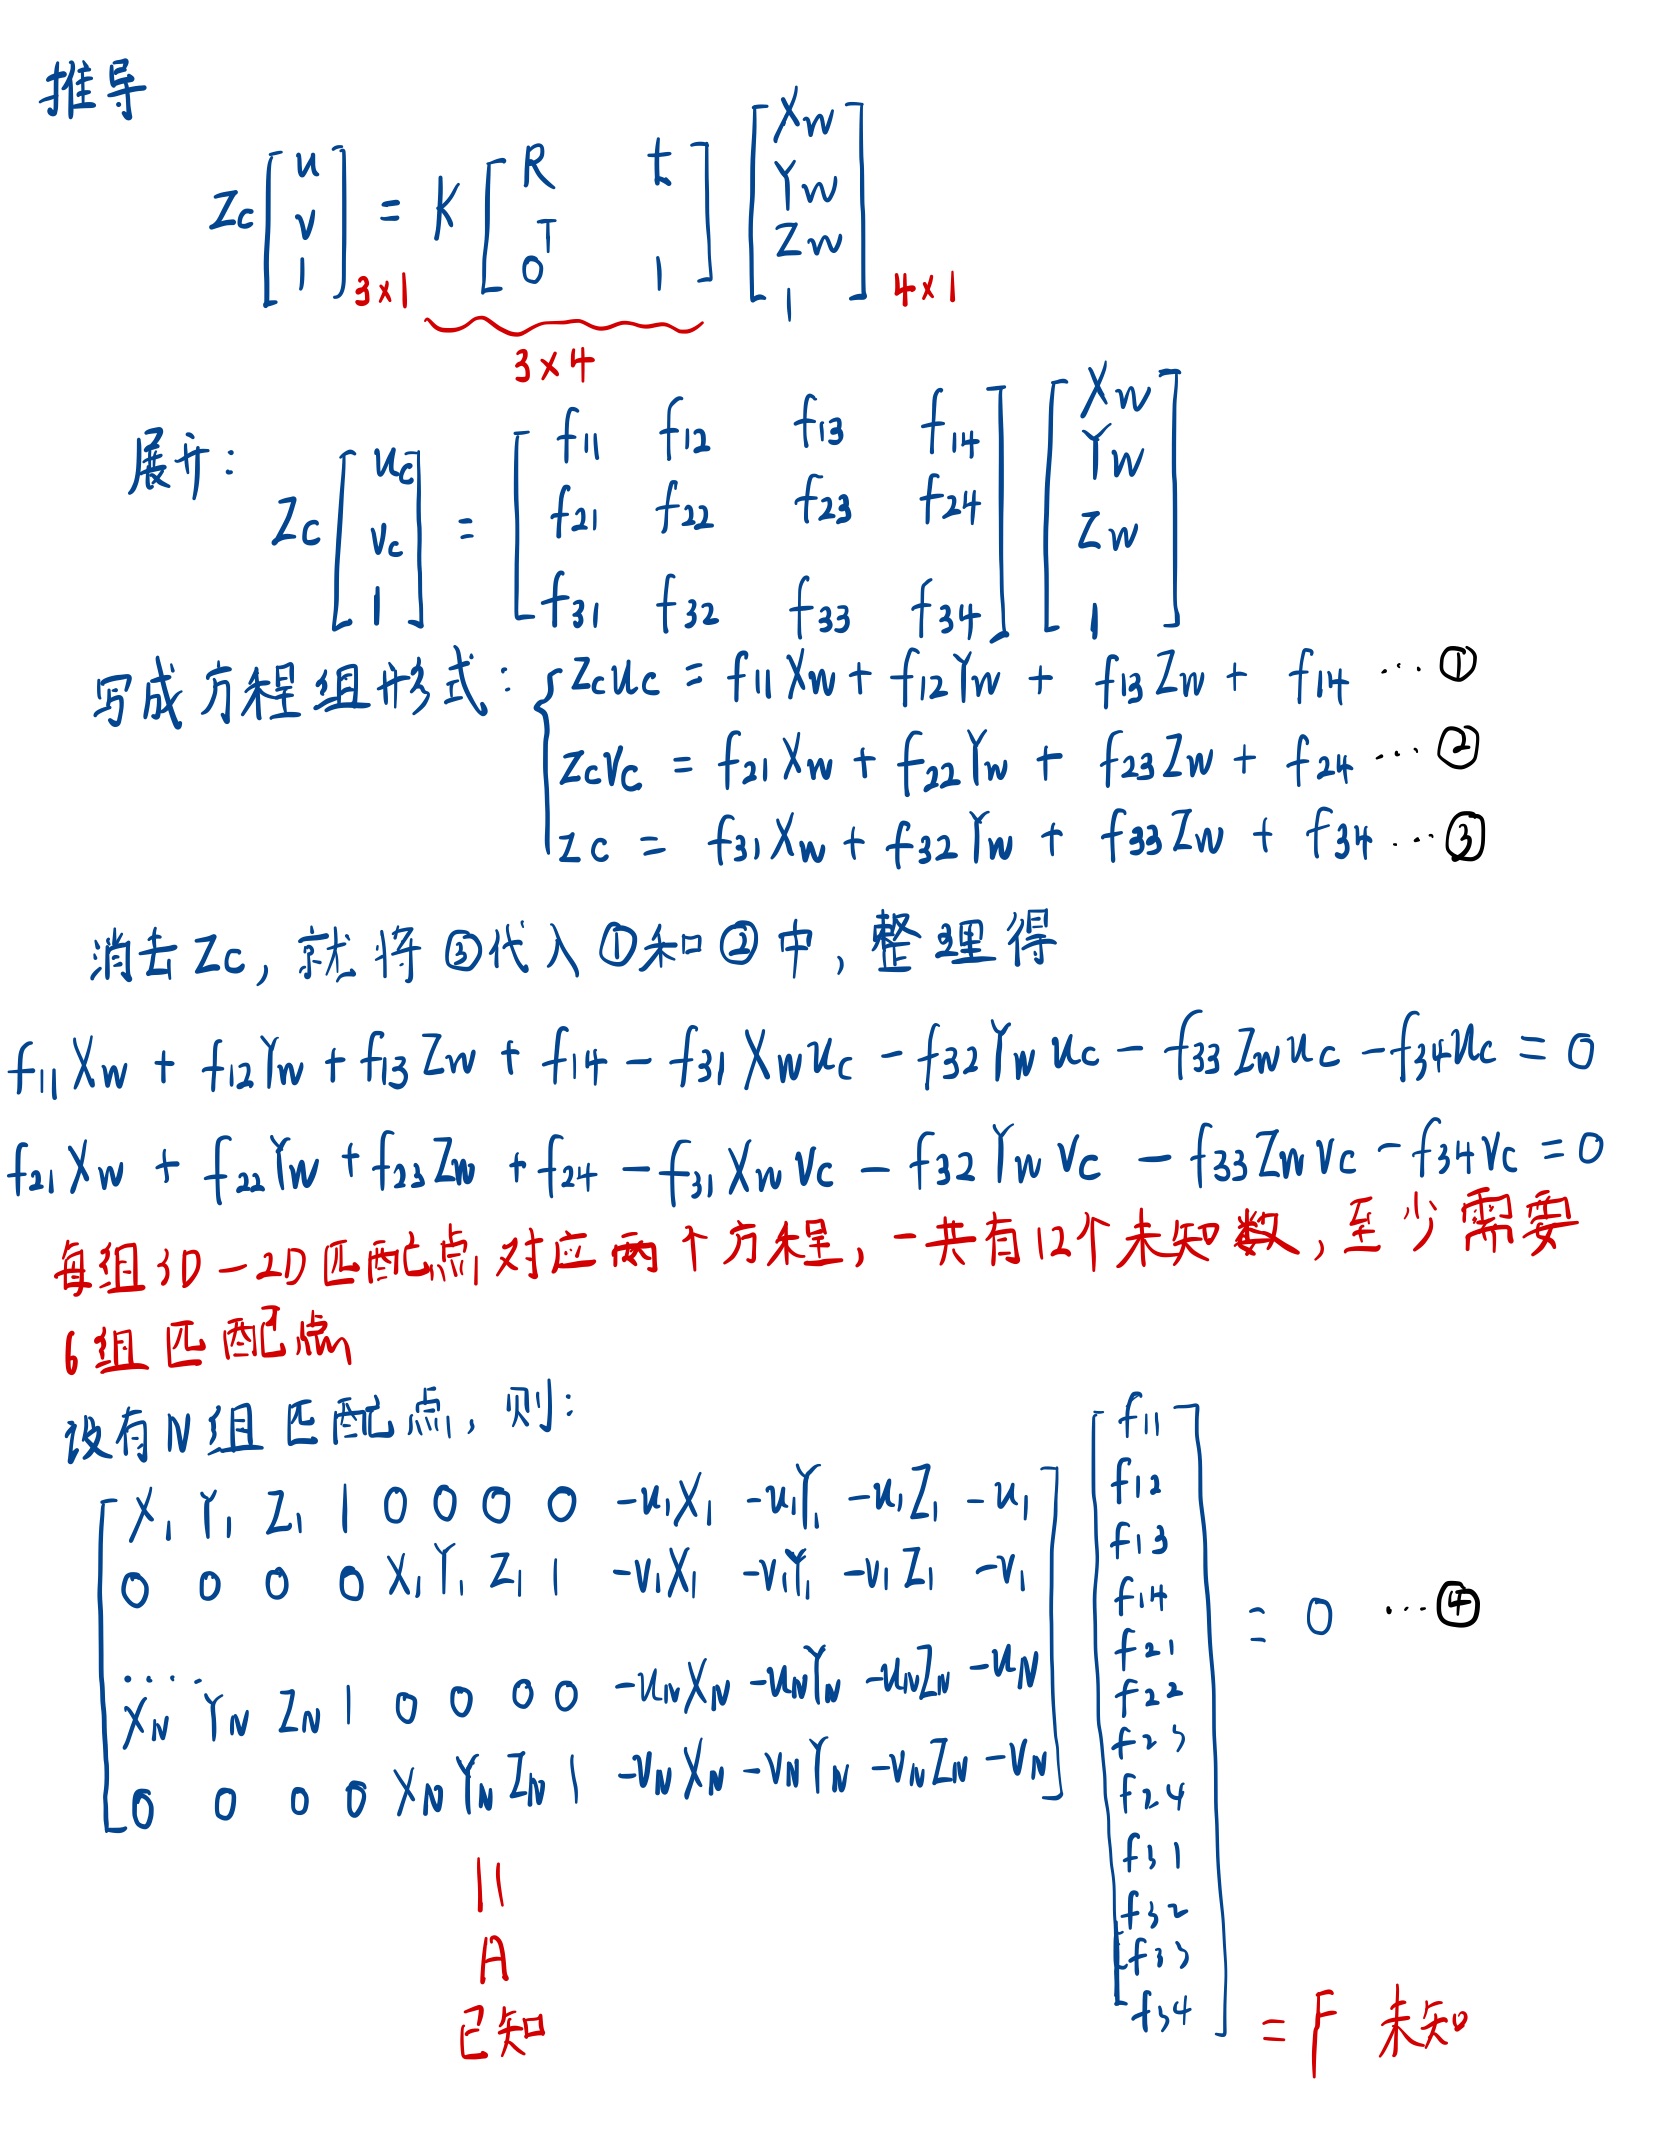 推导
Zc [u v 1] 3×1 = K [R t 0ᵀ 1] [Xw Yw Zw 1] 4×1
3×4
展开: Zc [uc vc 1] = [f11 f12 f13 f14 f21 f22 f23 f24 f31 f32 f33 f34] [Xw Yw Zw 1]
写成方程组形式: { Zcuc = f11Xw + f12Yw + f13Zw + f14 … ①
Zcvc = f21Xw + f22Yw + f23Zw + f24 … ②
Zc = f31Xw + f32Yw + f33Zw + f34 … ③
消去Zc, 就将③代入①和②中, 整理得
f11Xw + f12Yw + f13Zw + f14 - f31Xwuc - f32Ywuc - f33Zwuc - f34uc = 0
f21Xw + f22Yw + f23Zw + f24 - f31Xwvc - f32Ywvc - f33Zwvc - f34vc = 0
每组3D-2D匹配点对应两个方程, 一共有12个未知数, 至少需要
6组匹配点
设有N组匹配点, 则:
X1 Y1 Z1 1 0 0 0 0 -u1X1 -u1Y1 -u1Z1 -u1
0 0 0 0 X1 Y1 Z1 1 -v1X1 -v1Y1 -v1Z1 -v1
…
XN YN ZN 1 0 0 0 0 -uNXN -uNYN -uNZN -uN
0 0 0 0 XN YN ZN 1 -vNXN -vNYN -vNZN -vN
f11
f12
f13
f14
f21
f22
f23
f24
f31
f32
f33
f34
= 0 … ④
||
A
已知
= F 未知